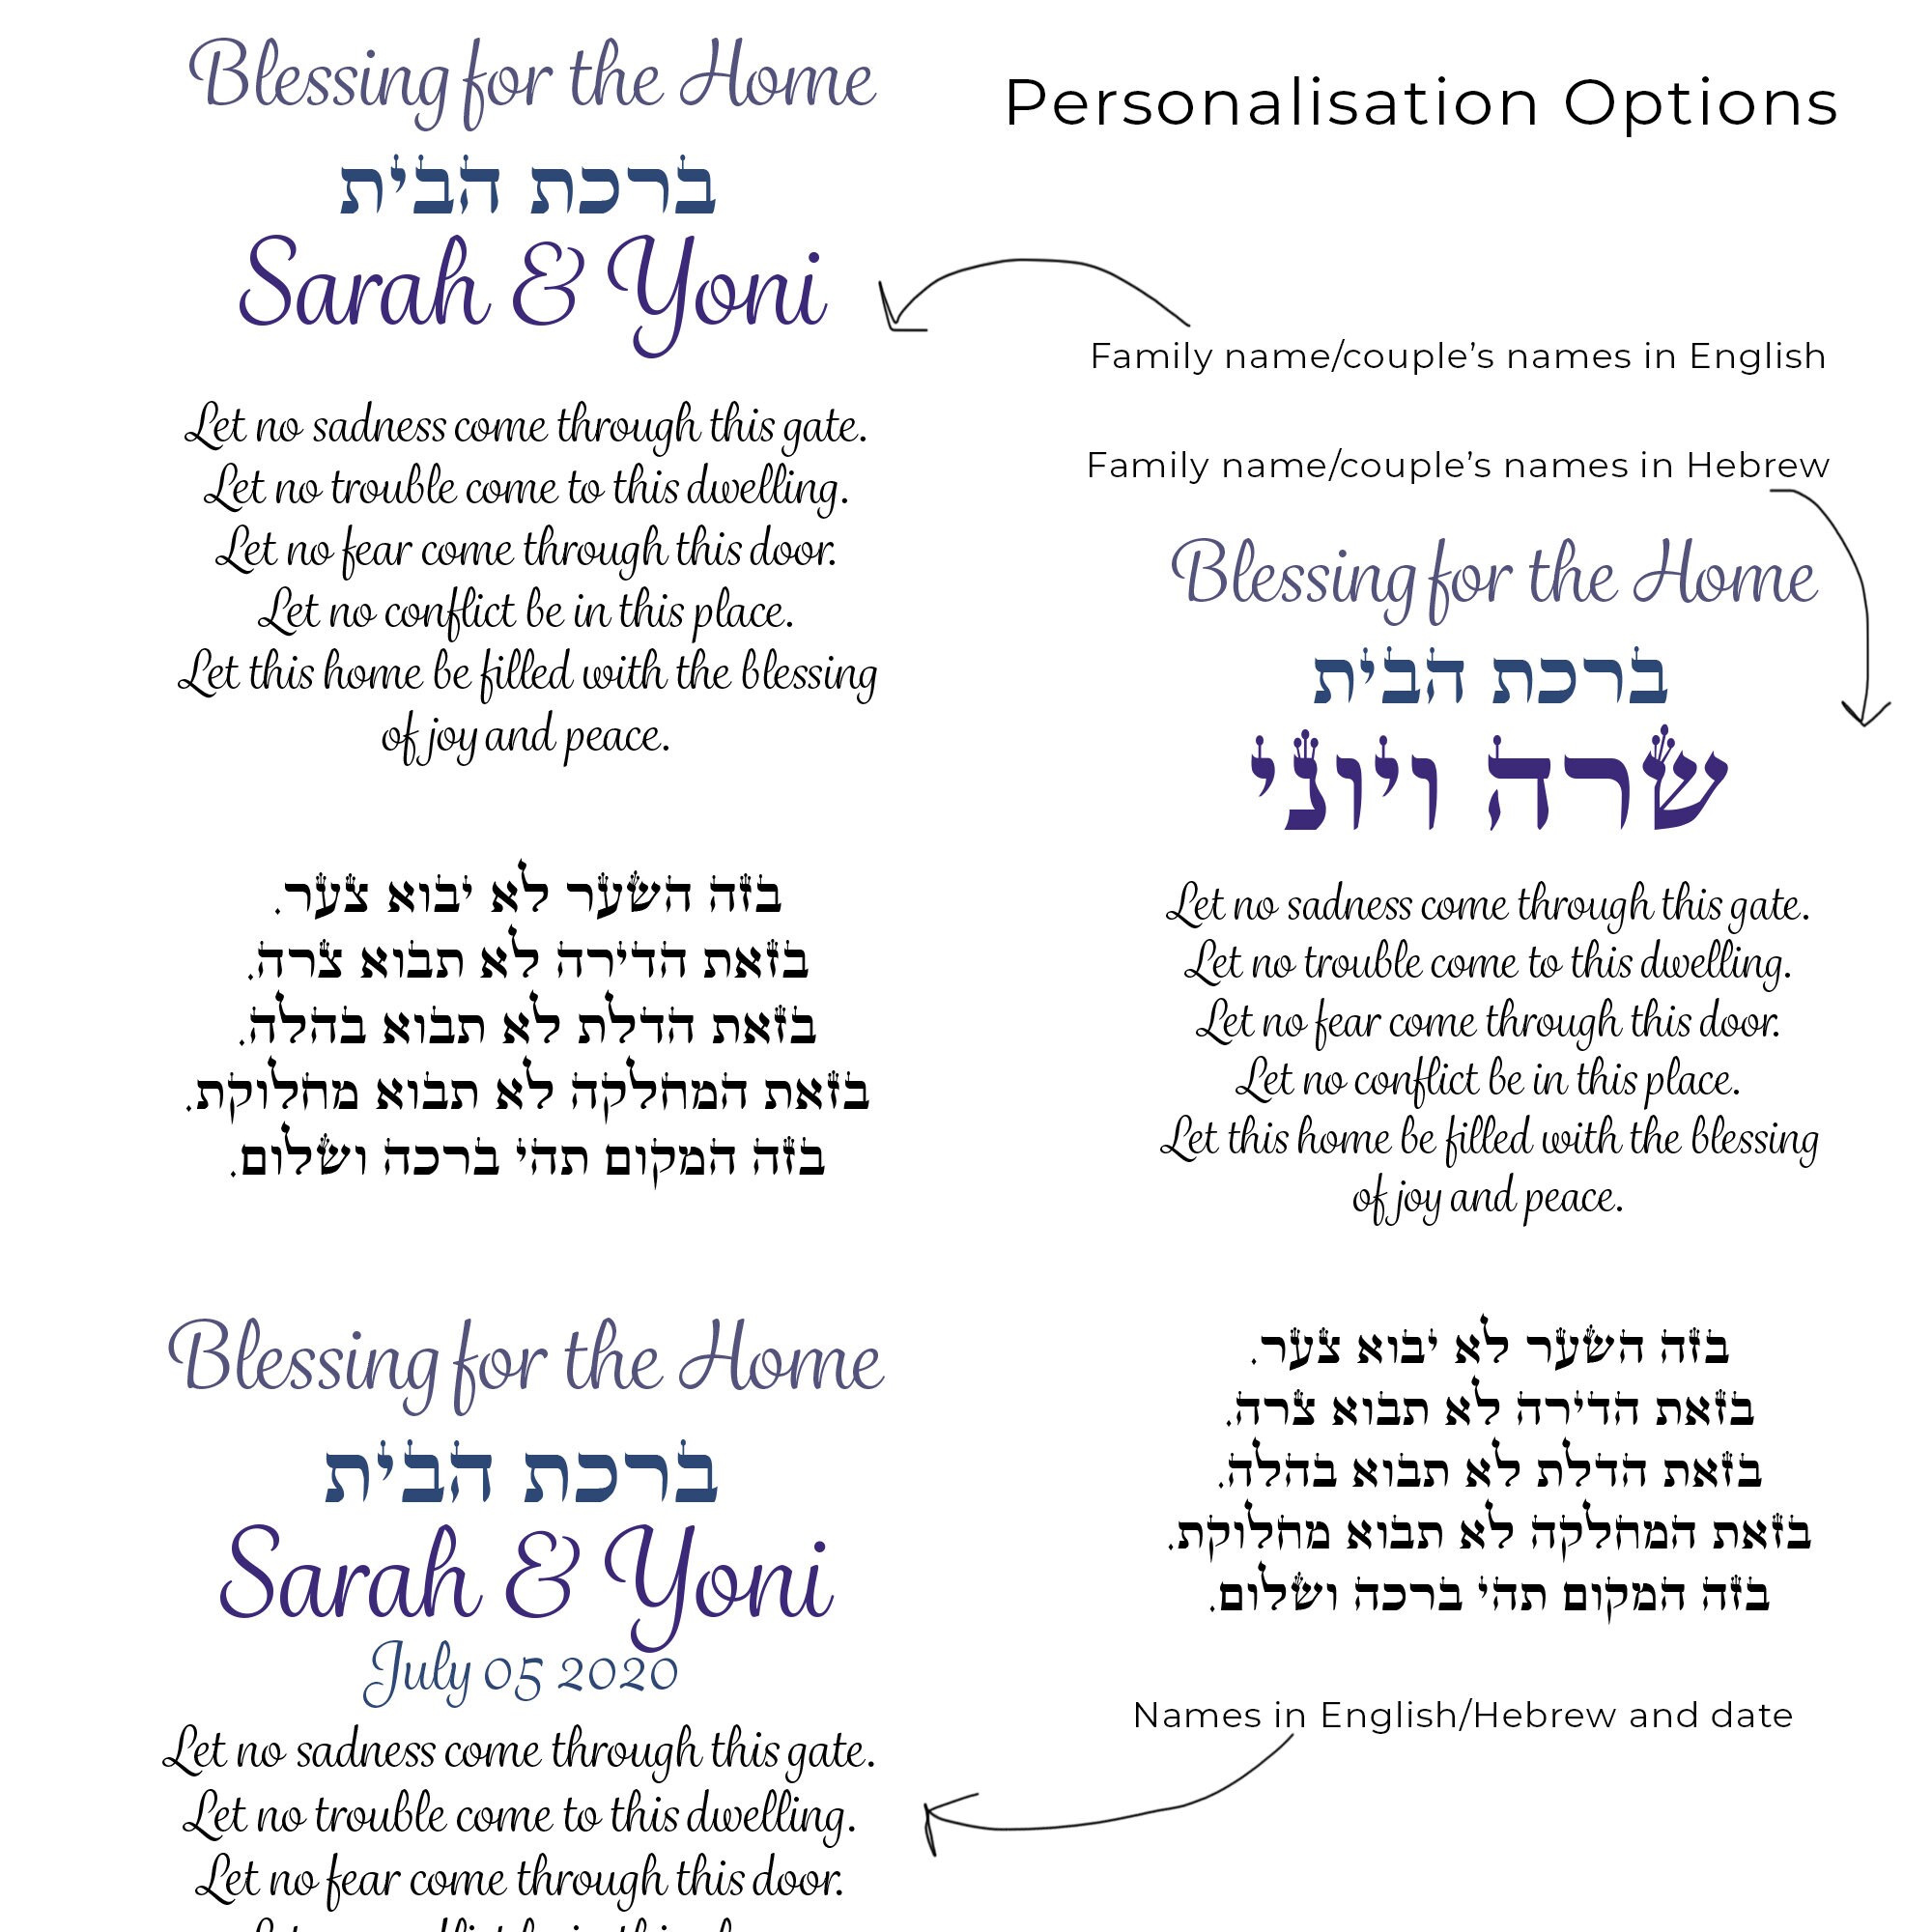 Blessing for the Home
ברכת הבית
Sarah & Yoni
Let no sadness come through this gate.
Let no trouble come to this dwelling.
Let no fear come through this door.
Let no conflict be in this place.
Let this home be filled with the blessing
of joy and peace.
בזה השער לא יבוא צער.
בזאת הדירה לא תבוא צרה.
בזאת הדלת לא תבוא בהלה.
בזאת המחלקה לא תבוא מחלוקת.
בזה המקום תהי ברכה ושלום.
Personalisation Options
Family name/couple’s names in English
Family name/couple’s names in Hebrew
Blessing for the Home
ברכת הבית
שרה ויוני
Let no sadness come through this gate.
Let no trouble come to this dwelling.
Let no fear come through this door.
Let no conflict be in this place.
Let this home be filled with the blessing
of joy and peace.
בזה השער לא יבוא צער.
בזאת הדירה לא תבוא צרה.
בזאת הדלת לא תבוא בהלה.
בזאת המחלקה לא תבוא מחלוקת.
בזה המקום תהי ברכה ושלום.
Blessing for the Home
ברכת הבית
Sarah & Yoni
July 05 2020
Let no sadness come through this gate.
Let no trouble come to this dwelling.
Let no fear come through this door.
Names in English/Hebrew and date